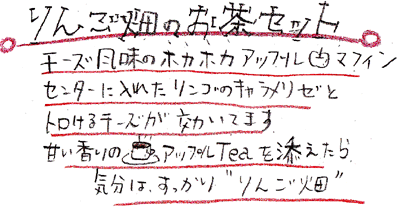 りんご畑のお茶セット
チーズ風味のホカホカアップル㊇マフィン
センターに入れたリンゴのキャラメリゼと
トロけるチーズが効いてます
甘い香りのアップルTeaを添えたら
気分は、すっかり"りんご畑"